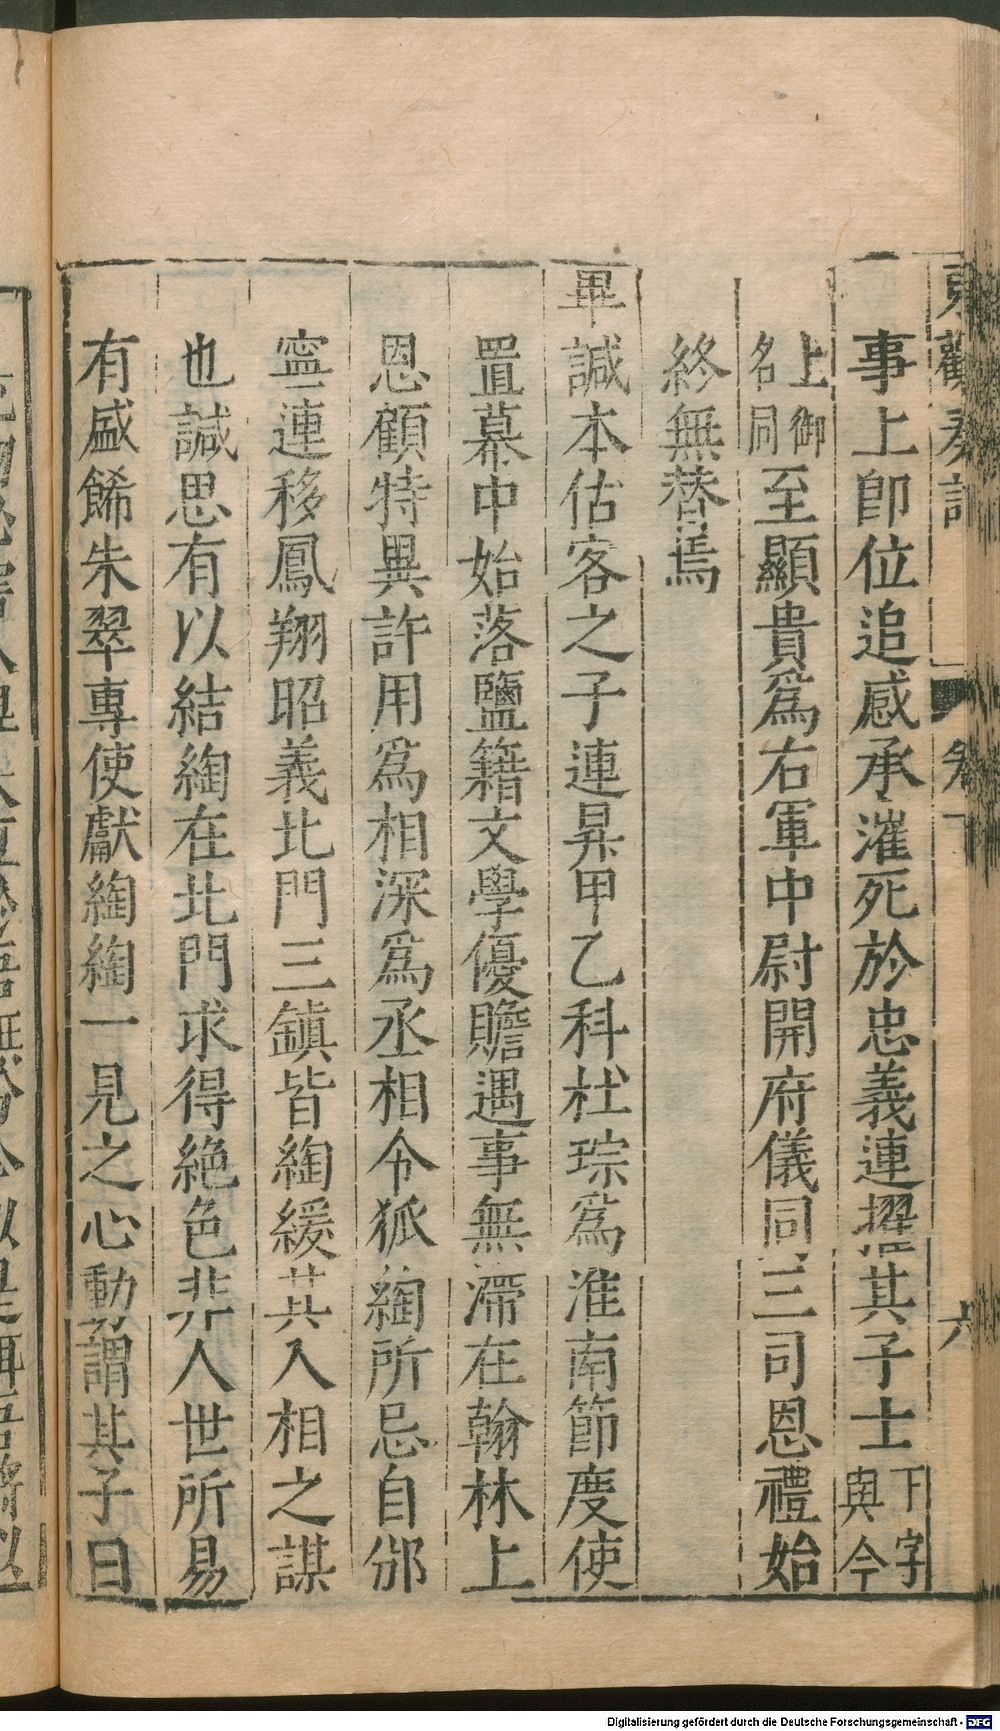 東觀奏記 卷下 六
事上卽位追感承漼死於忠義連擢其子士下字與今
上御名同至顯貴爲右軍中尉開府儀同三司恩禮始
終無替焉
畢諴本估客之子連昇甲乙科杜琮爲淮南節度使
置幕中始落鹽籍文學優贍遇事無滯在翰林上
恩顧特異許用爲相深爲丞相令狐綯所忌自邠
寧連移鳳翔昭義北門三鎮皆綯緩其入相之謀
也諴思有以結綯在北門求得絶色非人世所易
有盛餙朱翠專使獻綯綯一見之心動謂其子曰
Digitalisierung gefördert durch die Deutsche Forschungsgemeinschaft - DFG